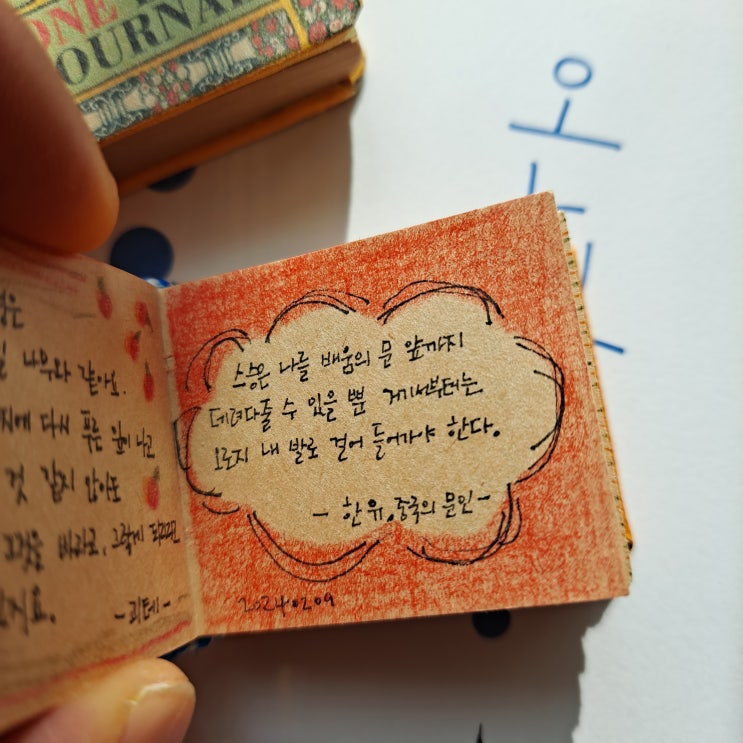 ONE
JOURNAL
나무와 같아요.
다시 푸른 잎이 나고
것 같지 않아도
그것을 바라고, 그렇게 되리라고
-괴테-
스승은 나를 배움의 문 앞까지
데려다줄 수 있을 뿐 거기서부터는
오로지 내 발로 걸어 들어가야 한다.
- 한유, 중국의 문인 -
2024.02.09